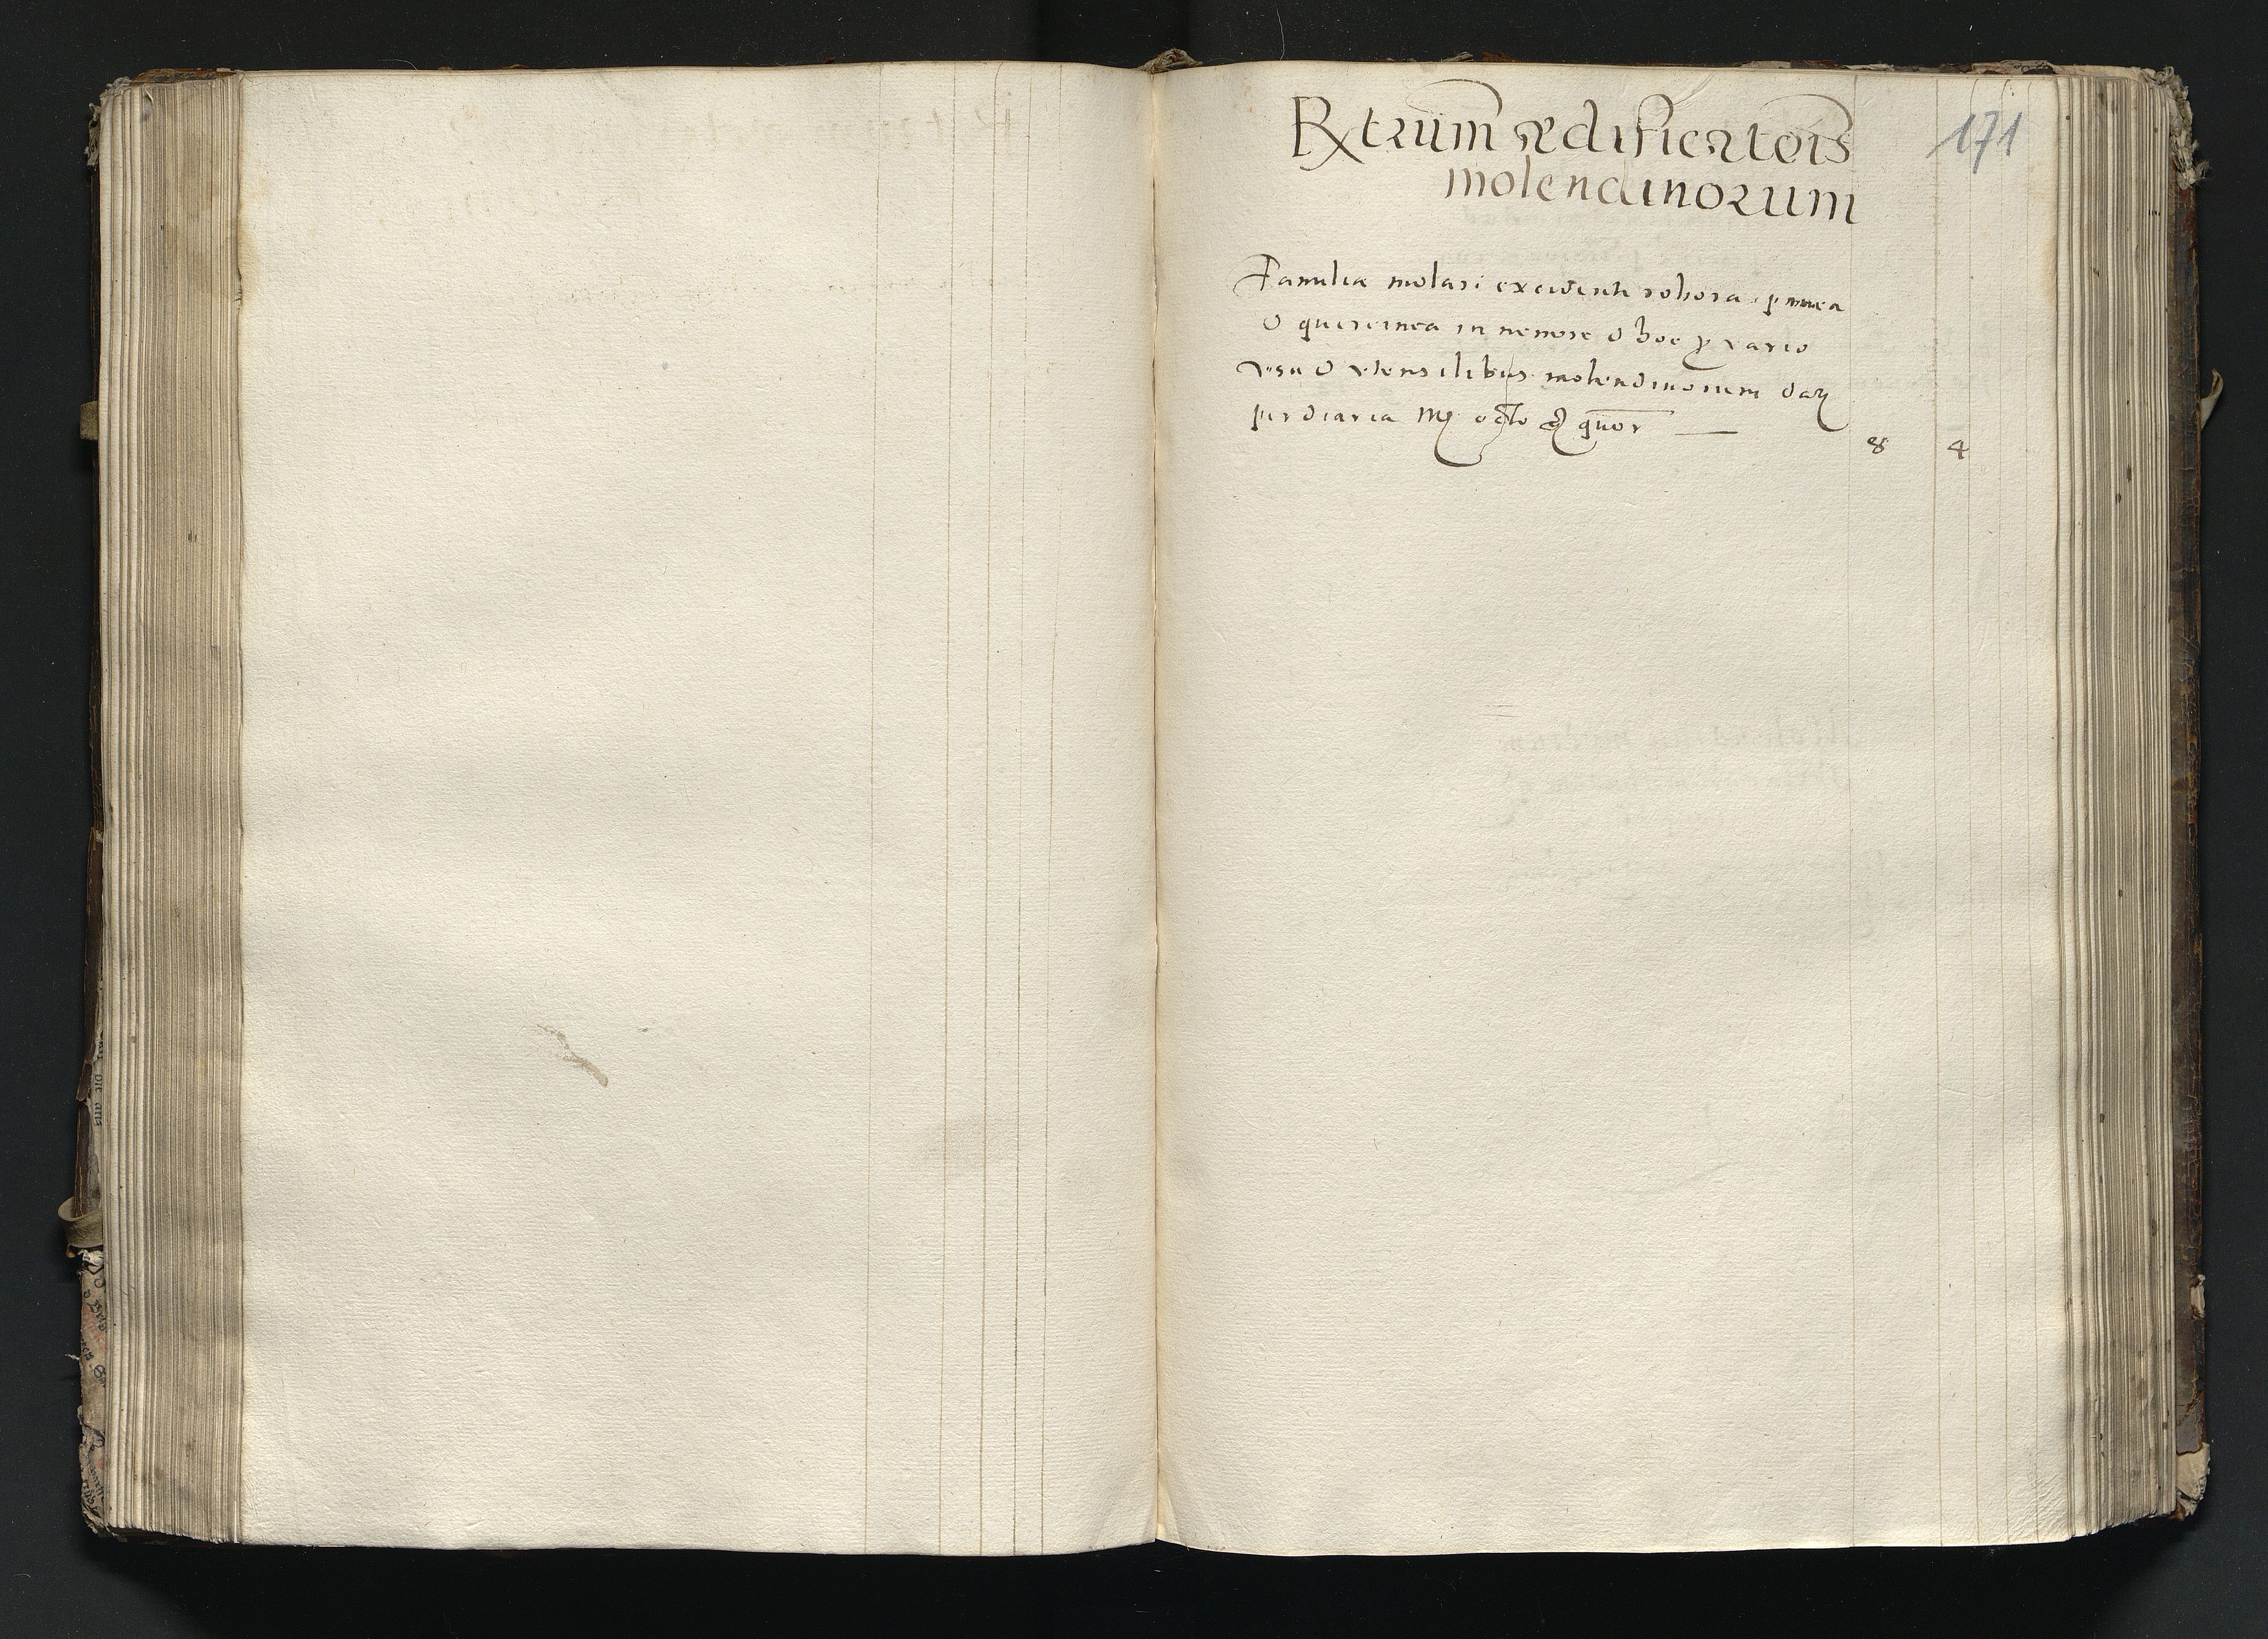 Extrum ædificatois
171
molendinorum
Familia molari excidenti robora pinea
& quercinea in nemore & hoc ꝓ vario
vsu & vtensilibus molendinorum datꝫ
per diaria mꝫ octo gꝫ quor
8 4